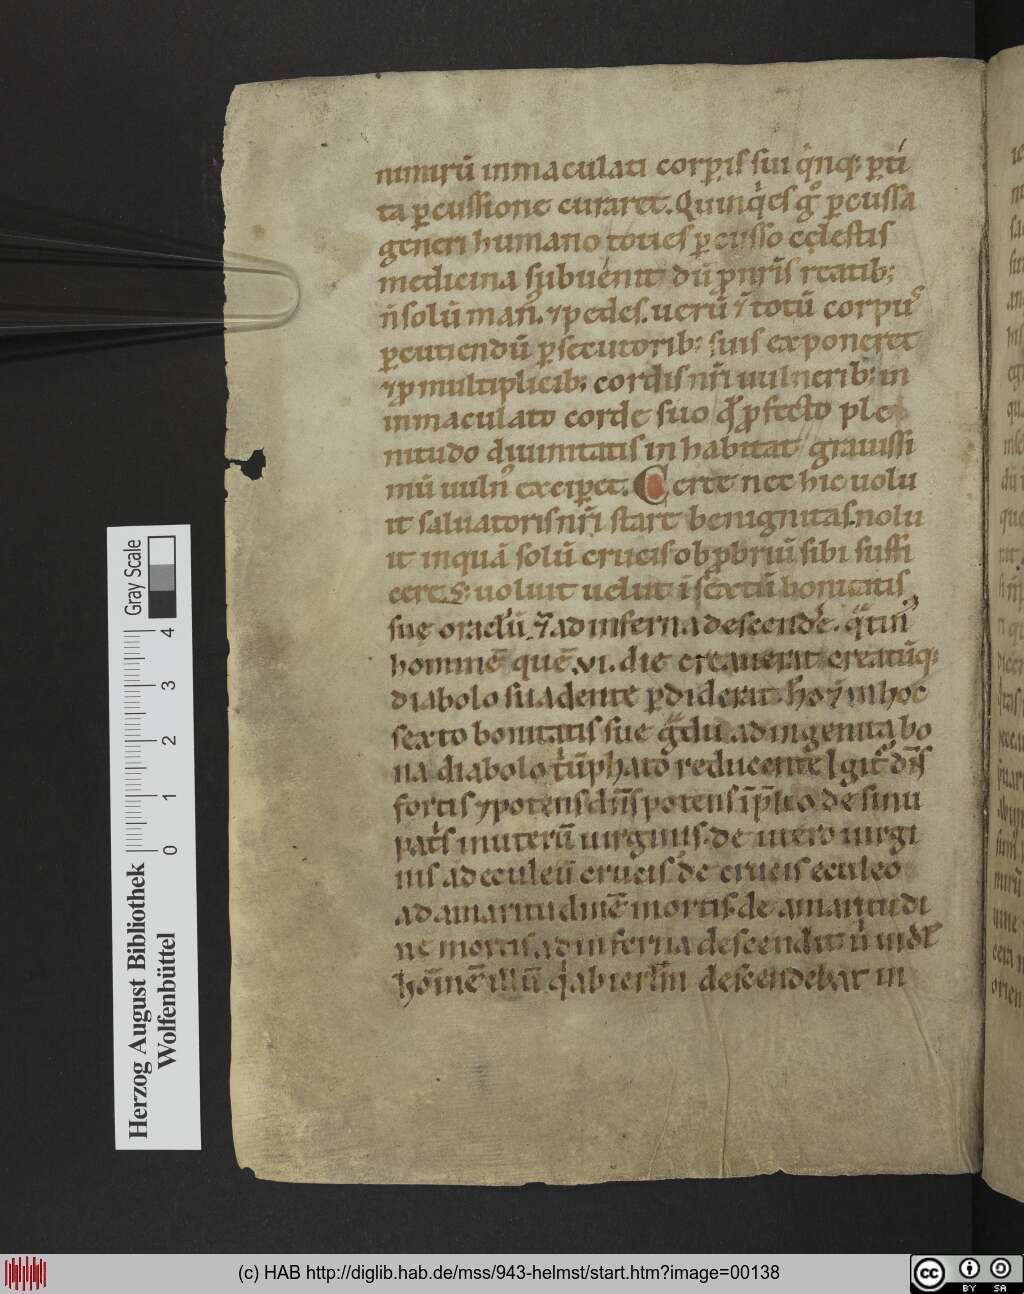 nimirū inmaculati corꝑis sui q̇nq; ꝑti
ta ꝑcussione curaret. Quinq̇es gͦ ꝑcussa
generi humano toties ꝑcusso cęlestis
medicina subuenit dū p nr̄is reatib;
n̄ solū man᷒. ⁊ pedes. uerū ⁊ totū corpuˢ
ꝑcutiendū ꝑsecutorib; suis exponeret
⁊ ꝓ multiplicib; cordis nr̄i uulnerib; in
inmaculato corde suo ꝓfecto ple
nitudo diuinitatis inhabitat grauissi
mū uuln᷒ exciperet. Certe nec hic uolu
it saluatoris nr̄i stare benignitas. nolu
it inquā solū crucis obꝓbriū sibi suffi
cere. S; uoluit uelut ī sextū bonitatis
suę oraclū, ⁊ ad inferna descendere.
hominē quē .vi. die creauerat creatūq;
diabolo suadente ꝑdiderat. hoc ⁊ in hoc
sexto bonitatis suę gᵃdu. ad ingenita bo
na diabolo triūphato reducente Igit᷑ dn̄s
fortis ⁊ potens dn̄s potens ī p̄lio. de sinu
patͥs in uterū uirginis. de utero uirgi
nis ad eculeū crucis. de crucis eculeo
ad amaritudinē mortis. de amaritudi
ne mortis. ad inferna descendit
hōinē illū q̇ ab ierlm̄ descendebat in
Herzog August Bibliothek
Wolfenbüttel
0 1 2 3 4
Gray Scale
(c) HAB http://diglib.hab.de/mss/943-helmst/start.htm?image=00138
cc BY SA